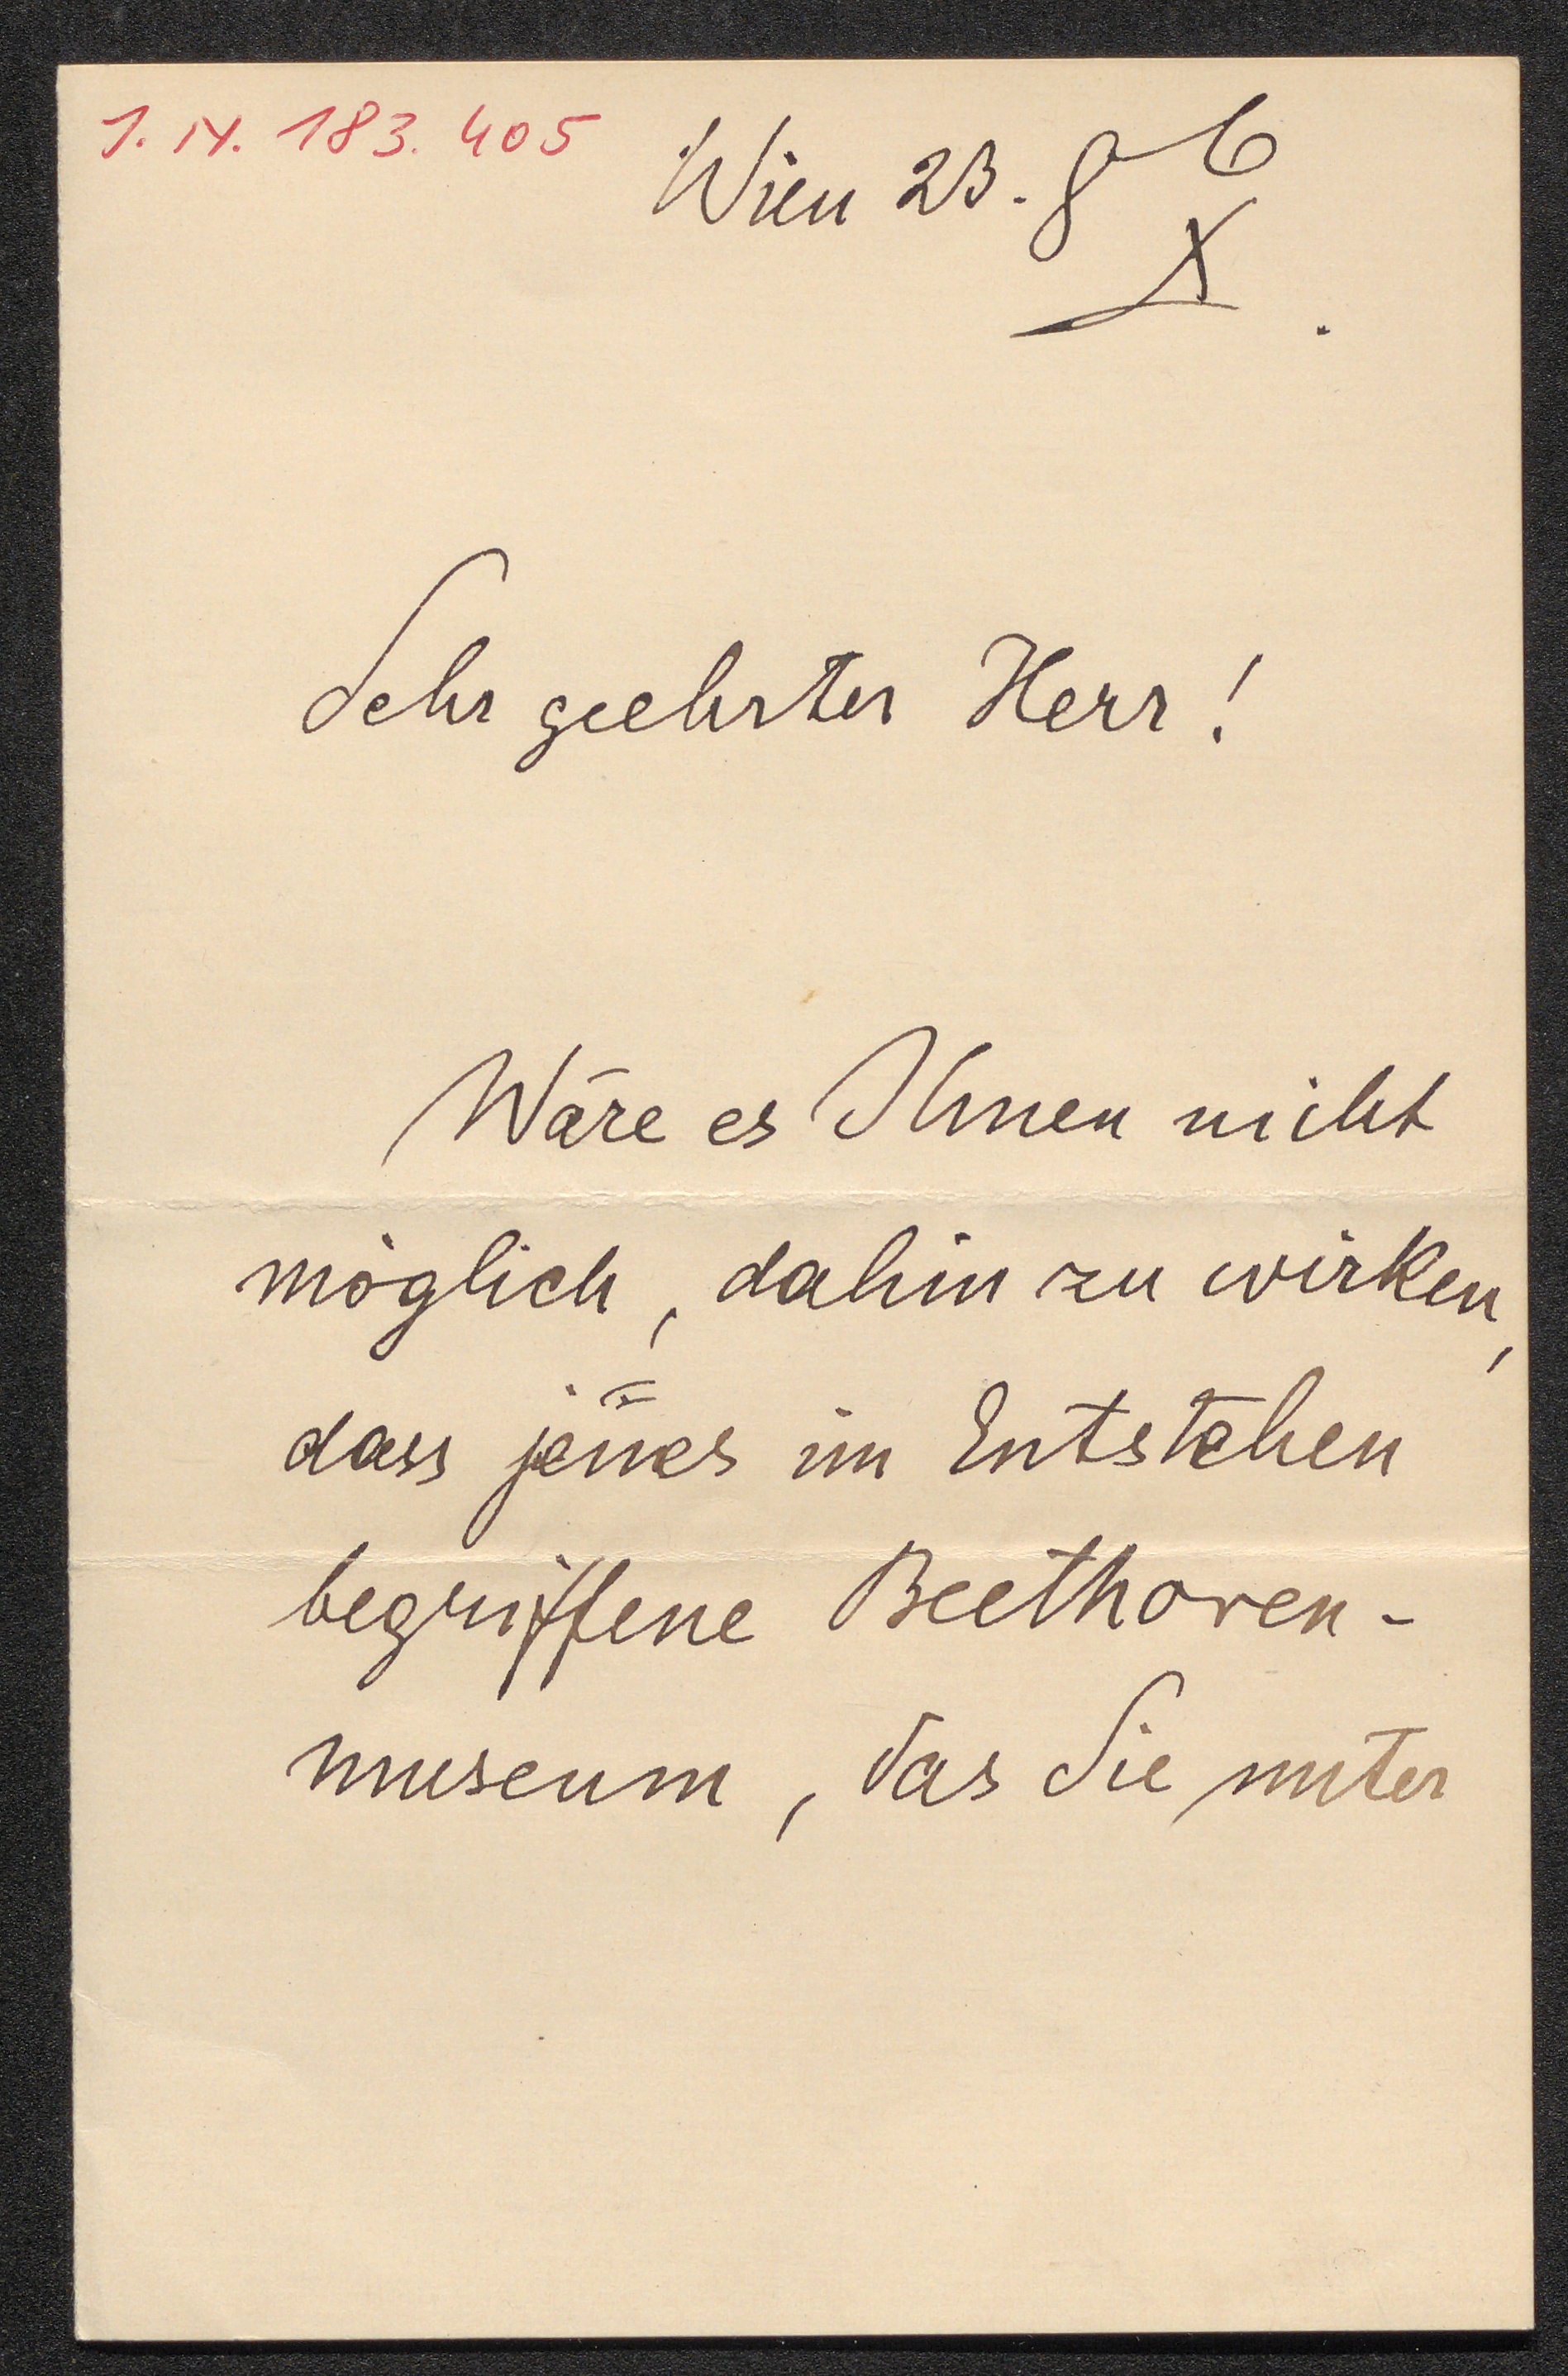 J. N. 183.405
Wien 23. 8
X
Sehr geehrter Herr!
Wäre es Ihnen nicht
möglich, dahin zu wirken,
dass jenes im Entstehen
begriffene Beethoven-
museum, das Sie unter